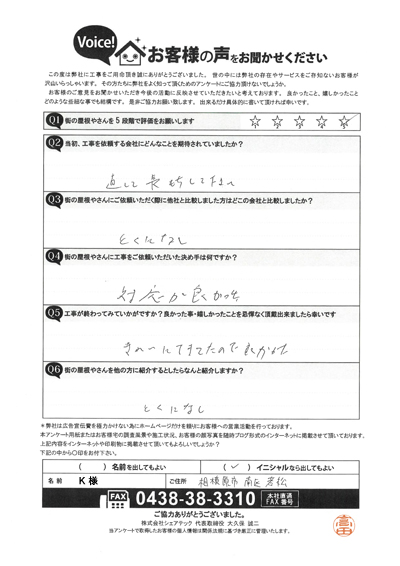 Voice!
お客様の声をお聞かせください
この度は弊社に工事をご用命頂き誠にありがとうございました。世の中には弊社の存在やサービスをご存知ないお客様が
沢山いらっしゃいます。その方たちに弊社をよく知って頂くためのアンケートにご協力頂けないでしょうか。
お客様のご意見をお聞かせいただき今後の活動に反映させていただきたいと考えております。良かったこと、嬉しかったこと
どのような些細な事でも結構です。是非ご協力お願い致します。出来るだけ具体的に書いて頂ければ幸いです。
Q1 街の屋根やさんを5段階で評価をお願いします ☆ ☆ ☆ ☆ ☆
Q2 当初、工事を依頼する会社にどんなことを期待されていましたか?
直して長もちしてほしい
Q3 街の屋根やさんにご依頼いただく際に他社と比較しました方はどこの会社と比較しましたか?
とくになし
Q4 街の屋根やさんに工事をご依頼いただいた決め手は何ですか?
対応が良かった
Q5 工事が終わってみていかがですか?良かった事・嬉しかったことを忌憚なく頂戴出来ましたら幸いです
きれいにできてたので良かった
Q6 街の屋根やさんを他の方に紹介するとしたらなんと紹介しますか?
とくになし
＊弊社は広告宣伝費を極力かけない為にホームページだけを頼りにお客様への営業活動を行っております。
本アンケート用紙またはお客様宅の調査風景や施工状況、お客様の顔写真を随時ブログ形式のインターネットに掲載させて頂いております。
上記内容をインターネットや印刷物に掲載させて頂いてもよろしいでしょうか?
下記の中から〇印をお付下さい。
( )名前を出してもよい (✓)イニシャルなら出してもよい
名前 K様 ご住所 相模原市南区若松
FAX 0438-38-3310 本社直通 FAX番号
ご協力ありがとうございました。
株式会社シェアテック 代表取締役 大久保 誠二
当アンケートで取得したお客様の個人情報は関係法規に基づき厳正に管理いたします。